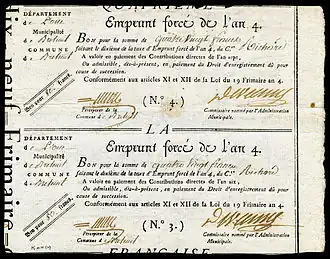 QUATRIÈME
DÉPARTEMENT
d'
Municipalité
d
COMMUNE
d Breteuil
Bon pour 80. francs.
Emprunt forcé de l'an 4.
BON pour la somme de quatre vingt francs
faisant le dixième de la taxe d'Emprunt forcé de l'an 4, du C.en Richard
A valoir en paiement des Contributions directes de l'an sept,
Ou admissible, dès-à-présent, en paiement du Droit d'enregistrement dû pour
cause de succession.
Conformément aux articles XI et XII de la Loi du 19 Frimaire an 4.
Percepteur de la
Commune d
(N.° 4.)
Commissaire nommé par l'Administration
Municipale.
LA
DÉPARTEMENT
d
Municipalité
d Breteuil
COMMUNE
d Breteuil
Bon pour 80. francs.
Emprunt forcé de l'an 4.
BON pour la somme de quatre vingt francs
faisant le dixième de la taxe d'Emprunt forcé de l'an 4, du C.en Richard
A valoir en paiement des Contributions directes de l'an
Ou admissible, dès-à-présent, en paiement du Droit d'enregistrement dû pour
cause de succession.
Conformément aux articles XI et XII de la Loi du 19 Frimaire an 4.
Percepteur de la
Commune d Breteuil
(N.° 3.)
Commissaire nommé par l'Administration
Municipale.
FRANÇAISE
ix-neuf Frimaire